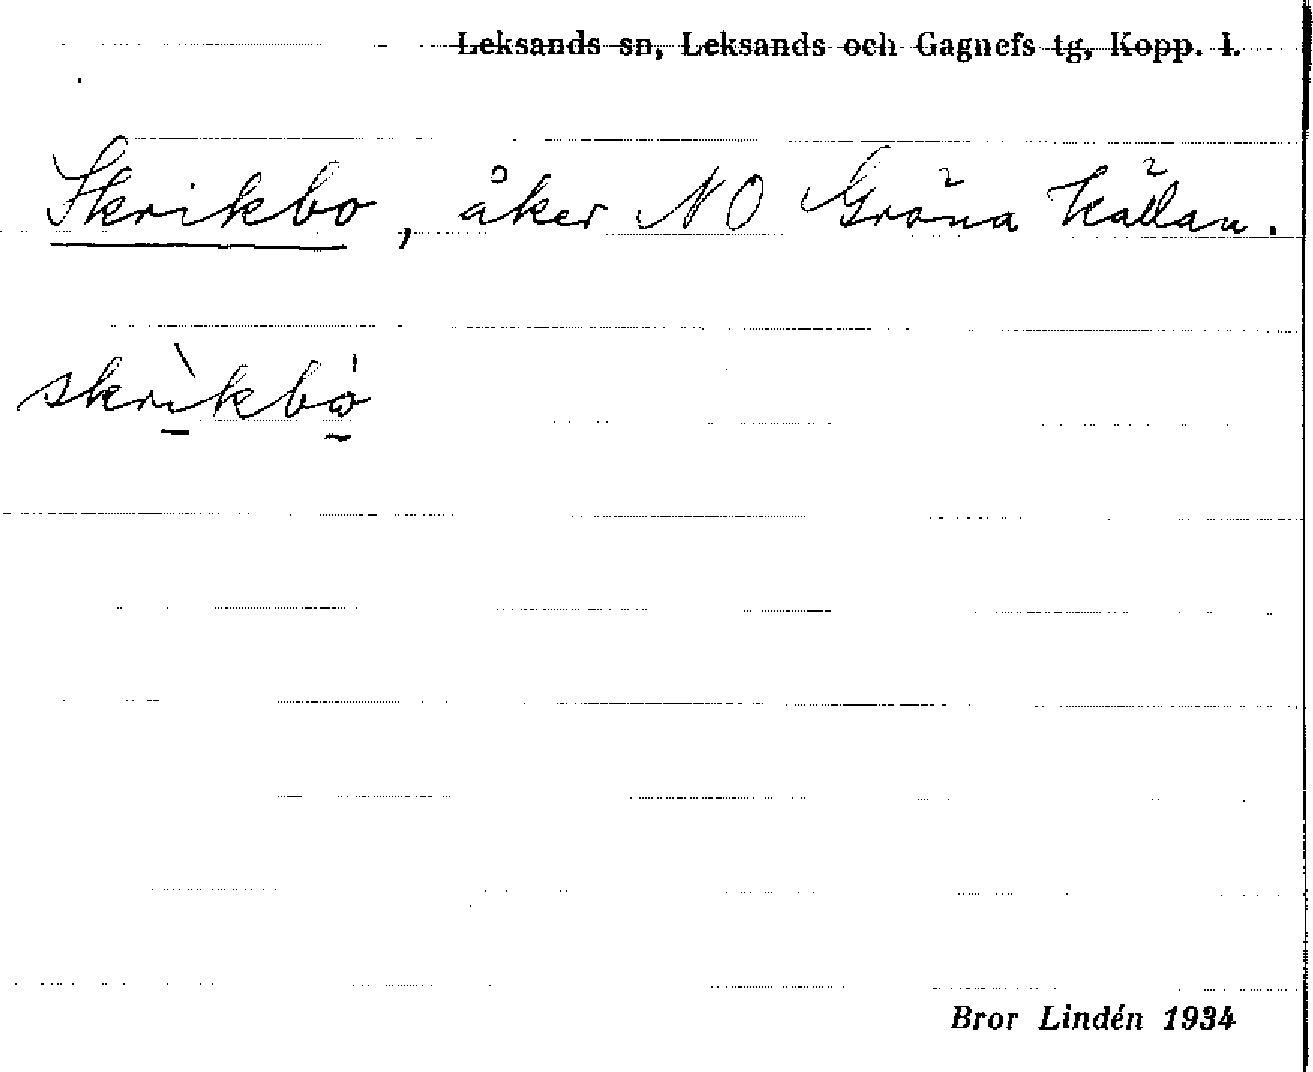 Leksands sn, Leksands och Gagnefs tg, Kopp. l.
Skrikbo, åker NO Gröna Källan.
skrìkbó
Bror Lindén 1934